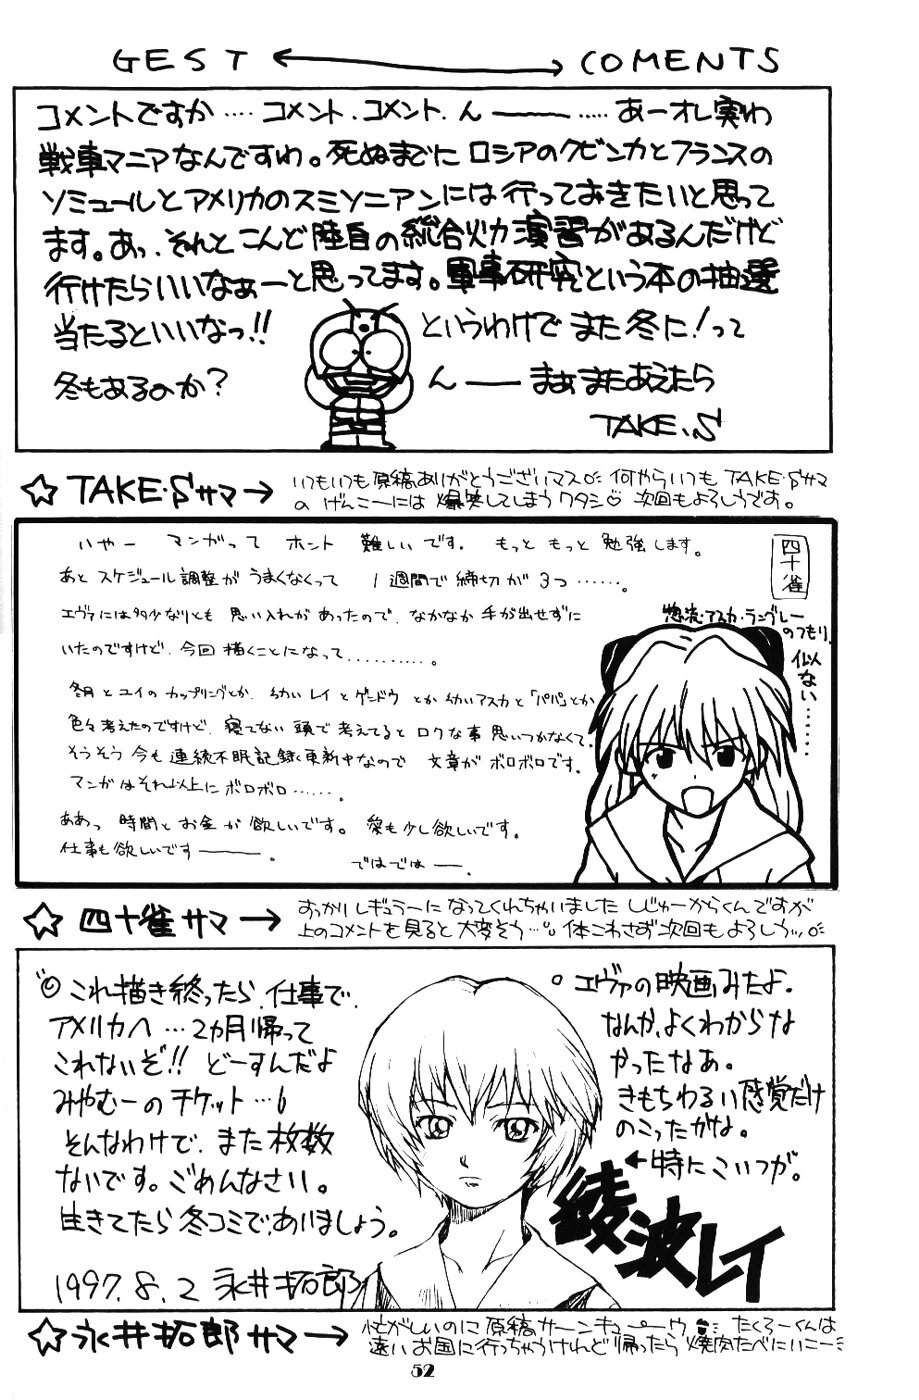 GEST ←→ COMENTS
コメントですか‥‥コメント.コメント.んー‥‥‥あーオレ実わ
戦車マニアなんですわ。死ぬまでにロシアのクビンカとフランスの
ソミュールとアメリカのスミソニアンには行っておきたいと思って
ます。あっ.それとこんど陸自の総合火力演習があるんだけど
行けたらいいなぁーと思ってます。軍事研究という本の抽選
当たるといいなっ!!
冬もあるのか?
というわけでまた冬に!って
んーまぁまたあえたら
TAKE.S
☆TAKE・Sサマ→
いつもいつも原稿ありがとうございマス 何やらいつもTAKE・Sサマ
のげんこーには爆笑してしまうワタシ♡ 次回もよろしうです。
いやー マンガって ホント 難しいです. もっと もっと 勉強します。
四十雀
あと スケジュール調整が うまくなくって 1週間で締切が3つ‥‥‥.
エヴァには多少なりとも 思い入れが あったので、なかなか 手が出せずに
いたのですけど.今回描くことになって‥‥‥‥‥。
冬月とユイのカップリングとか.幼いレイとゲンドウとか幼いアスカと「パパ」とか
色々考えたのですけど、寝てない頭で考えてるとロクな事思いつかなくて.
そうそう今も連続不眠記録更新中なので 文章がボロボロです.
マンガはそれ以上にボロボロ‥‥‥.
ああっ 時間とお金が欲しいです。愛も少し欲しいです.
仕事も欲しいですー.
ではではー.
惣流・アスカ・ラングレー
のつもり.
似ない‥‥‥
☆四十雀サマ→
すっかりレギュラーになってくれちゃいましたしじゅーからくんですが
上のコメントを見ると大変そう‥。体こわさず次回もよろしう
◎これ描き終ったら.仕事で、
アメリカへ‥‥2カ月帰って
これないぞ!! どーすんだよ
みやむーのチケット‥‥
そんなわけで、また枚数
ないです。ごめんなさい。
生きてたら冬コミで、あいましょう。
1997.8.2 永井拓郎
○エヴァの映画みたよ.
なんか、よくわからな
かったなあ。
きもちわるい感覚だけ
のこったがな。
←特にこいつが。
綾波レイ
☆永井拓郎サマ→
忙がしいのに原稿サーンキューウ たくろーくんは
遠いお国に行っちゃうけれど帰ったら焼肉たべにいこー
52